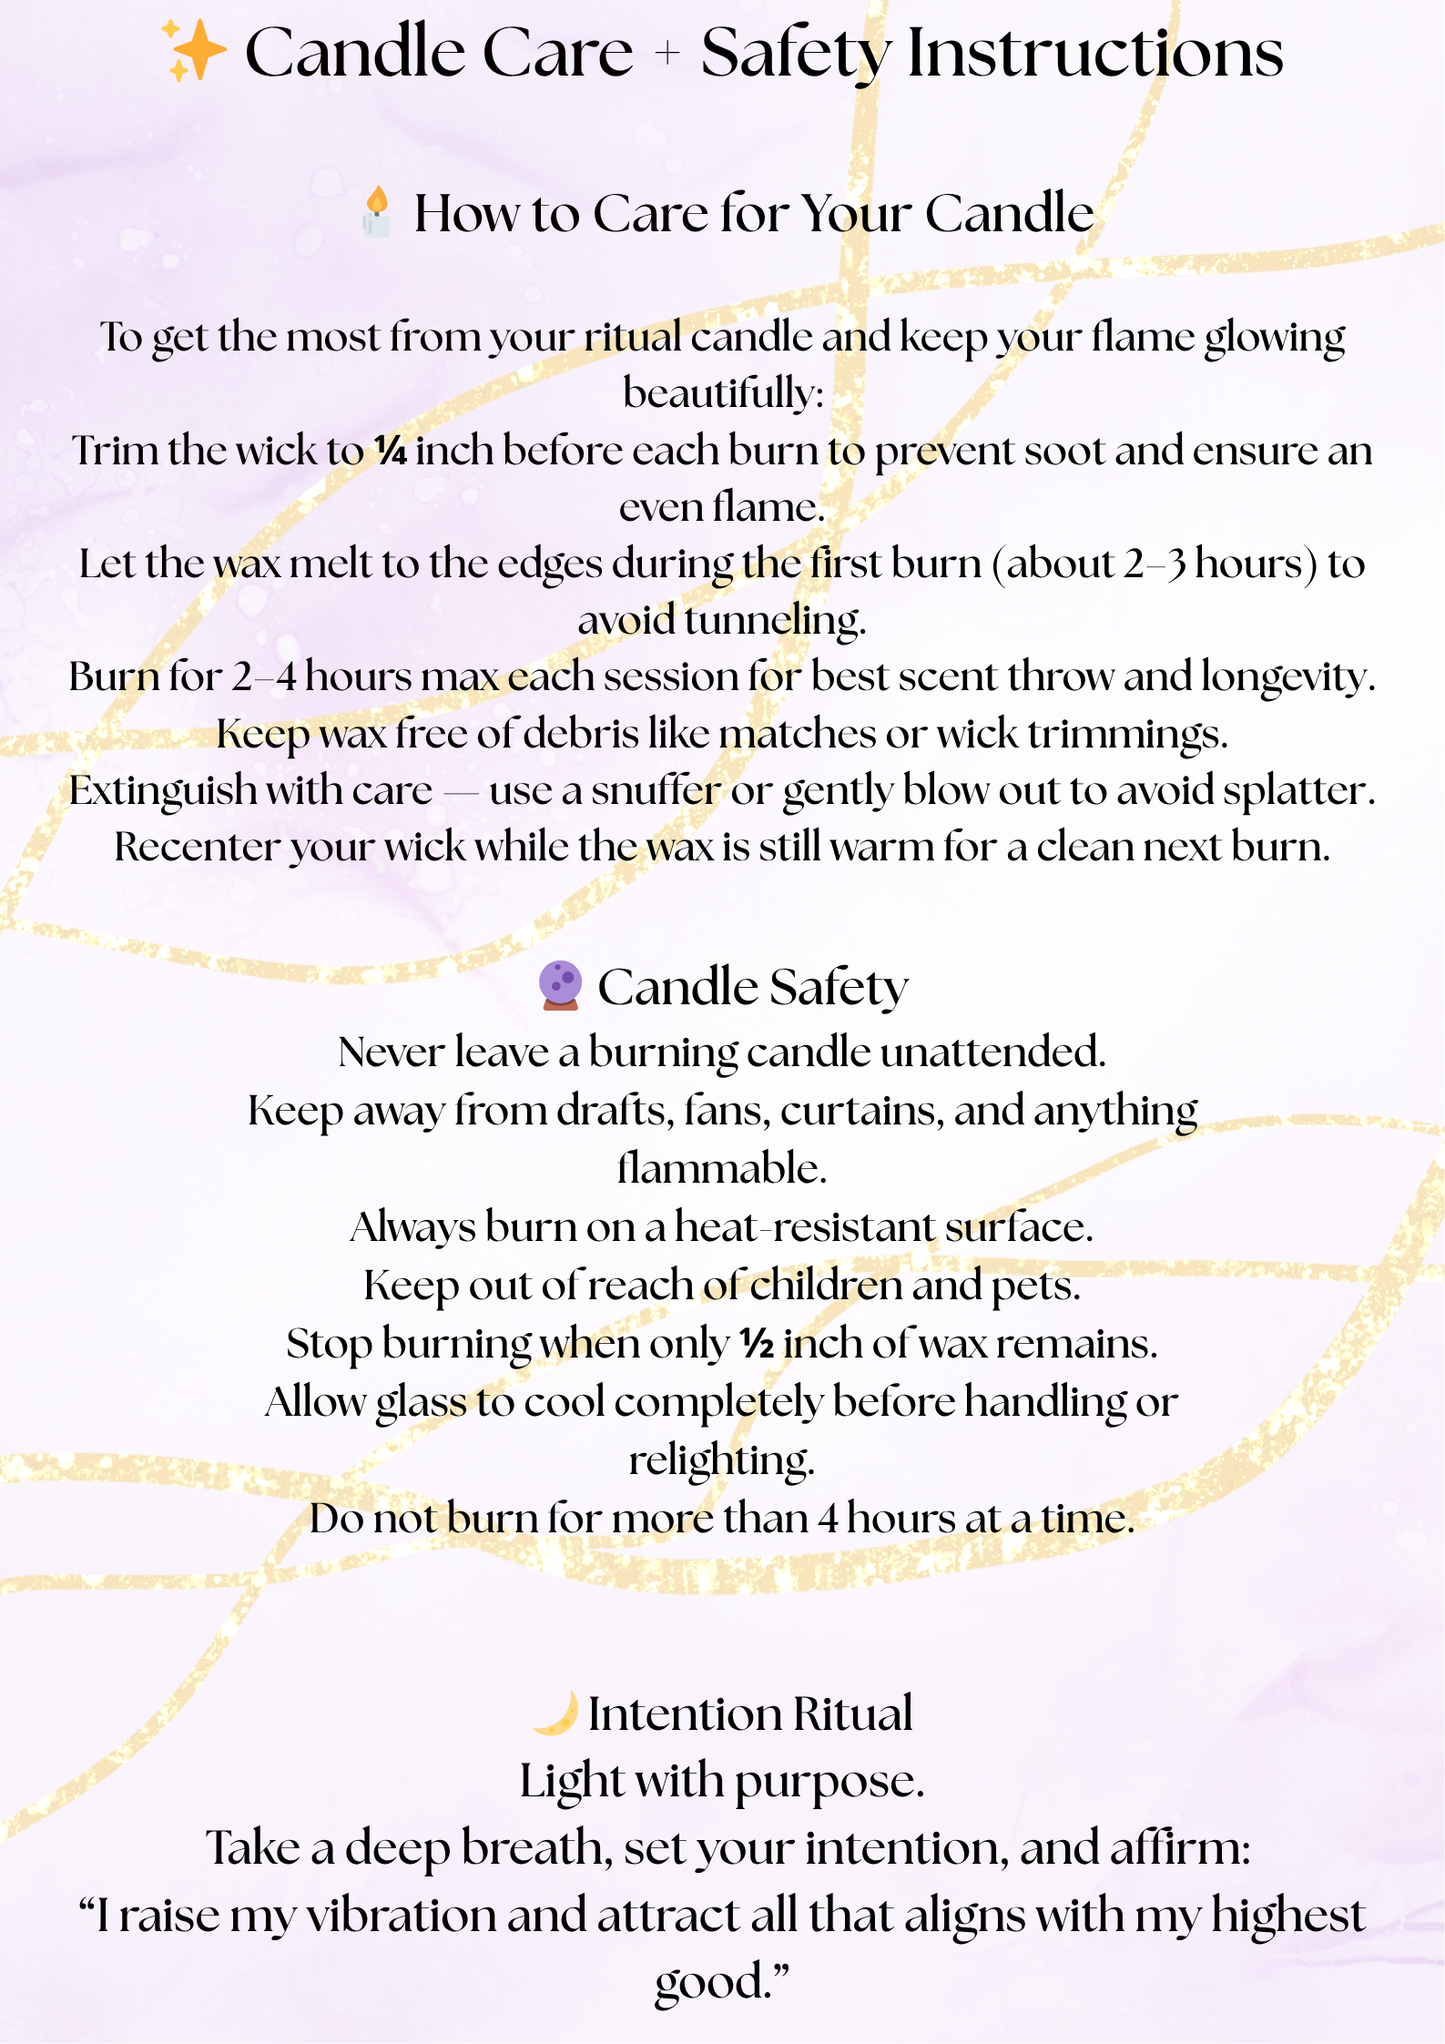 ✨ Candle Care + Safety Instructions
🕯️ How to Care for Your Candle
To get the most from your ritual candle and keep your flame glowing
beautifully:
Trim the wick to ¼ inch before each burn to prevent soot and ensure an
even flame.
Let the wax melt to the edges during the first burn (about 2–3 hours) to
avoid tunneling.
Burn for 2–4 hours max each session for best scent throw and longevity.
Keep wax free of debris like matches or wick trimmings.
Extinguish with care — use a snuffer or gently blow out to avoid splatter.
Recenter your wick while the wax is still warm for a clean next burn.
🔮 Candle Safety
Never leave a burning candle unattended.
Keep away from drafts, fans, curtains, and anything
flammable.
Always burn on a heat-resistant surface.
Keep out of reach of children and pets.
Stop burning when only ½ inch of wax remains.
Allow glass to cool completely before handling or
relighting.
Do not burn for more than 4 hours at a time.
🌙 Intention Ritual
Light with purpose.
Take a deep breath, set your intention, and affirm:
“I raise my vibration and attract all that aligns with my highest
good.”